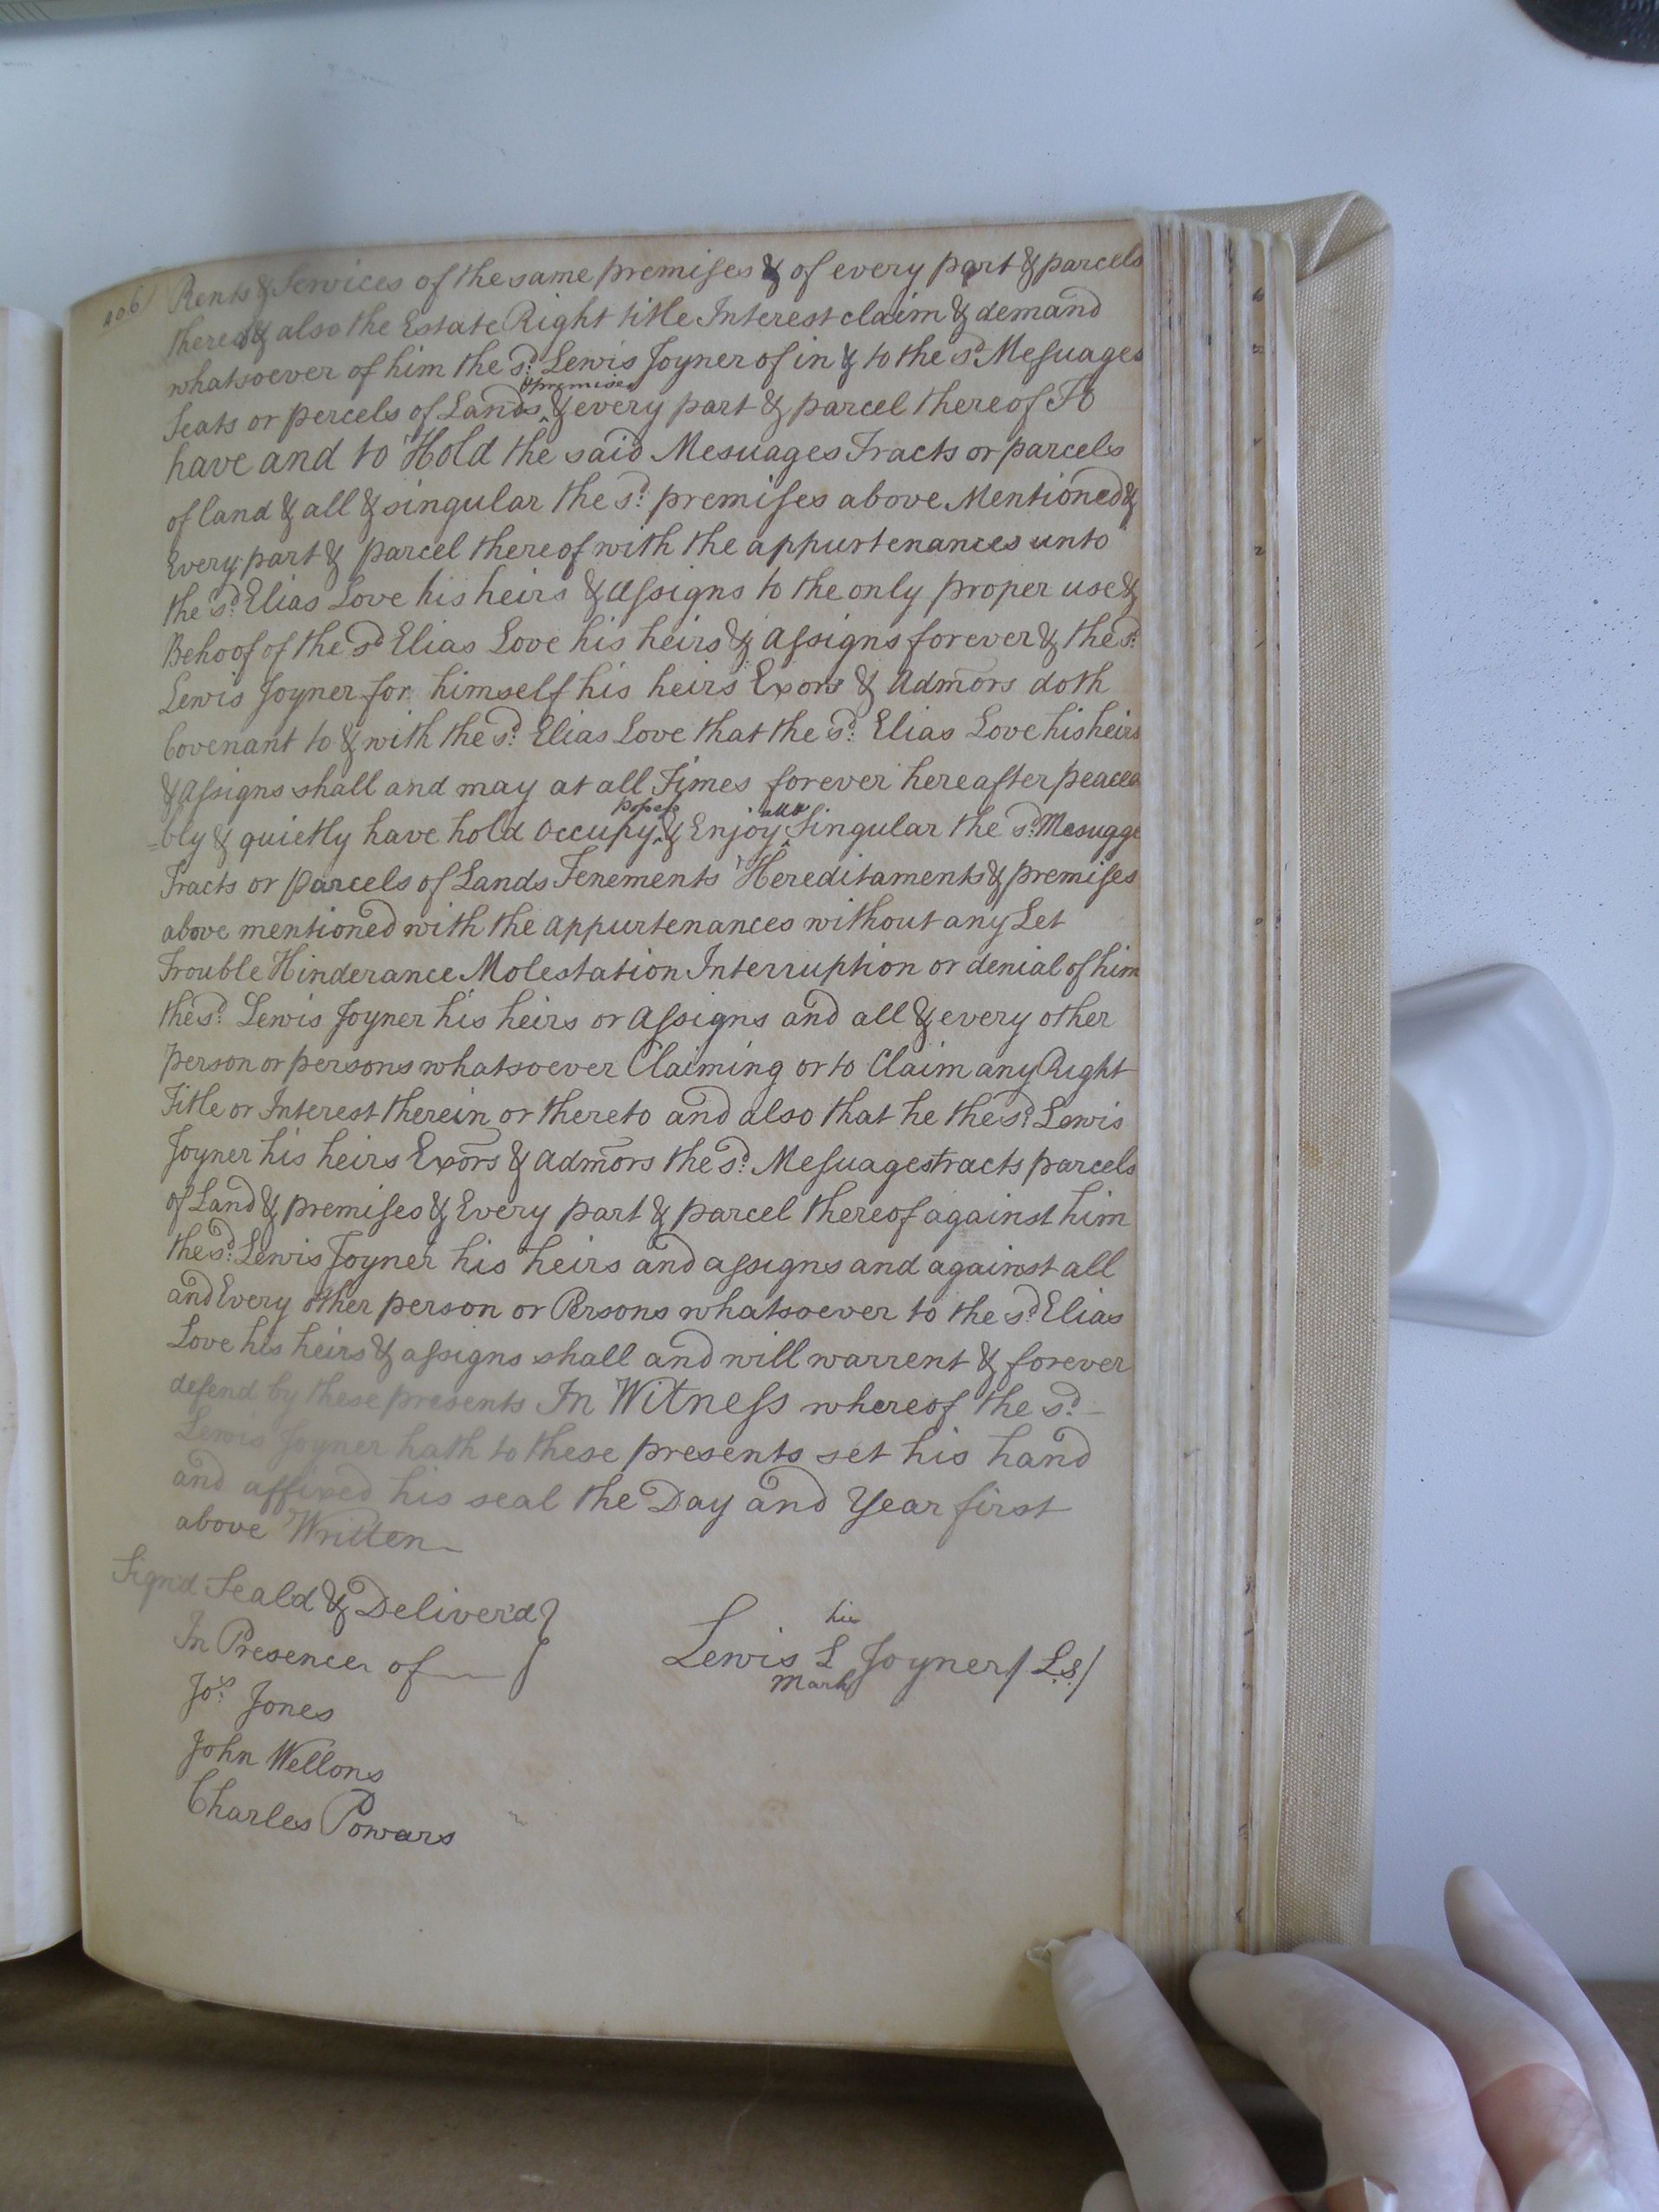 406)
Rents & Services of the same premises & of every part & parcels
thereof & also the Estate Right title Interest claim & demand
whatsoever of him the sd. Lewis Joyner of in & to the sd. Mesuages
Seats or percels of Lands & premises & every part & parcel thereof To
have and to Hold the said Mesuages Tracts or parcels
of land & all & singular the sd. premises above Mentioned &
Every part & parcel thereof with the appurtenances unto
the sd. Elias Love his heirs & assigns to the only proper use &
Behoof of the sd. Elias Love his heirs & assigns forever & the sd.
Lewis Joyner for himself his heirs Exors & Admors doth
Covenant to & with the sd. Elias Love that the sd. Elias Love his heirs
& assigns shall and may at all Times forever hereafter peacea
=bly & quietly have hold occupy posess & Enjoy all & Singular the sd. Mesuage
Tracts or parcels of Lands Tenements Hereditaments & premises
above mentioned with the appurtenances without any Let
Trouble Hinderance Molestation Interruption or denial of him
the sd. Lewis Joyner his heirs or assigns and all & every other
person or persons whatsoever Claiming or to Claim any Right
Title or Interest therein or thereto and also that he the sd. Lewis
Joyner his heirs Exors & admors the sd. Mesuages tracts parcels
of Land & premises & Every part & parcel thereof against him
the sd. Lewis Joyner his heirs and assigns and against all
and Every other person or Persons whatsoever to the sd. Elias
Love his heirs & assigns shall and will warrent & forever
defend by these presents In Witness whereof the sd.
Lewis Joyner hath to these presents set his hand
and affixed his seal the Day and Year first
above Written
Sign'd Seald & Deliver'd }
In Presence of
Jos. Jones
John Wellons
Charles Powars
his
Lewis L Joyner /L.S./
Mark